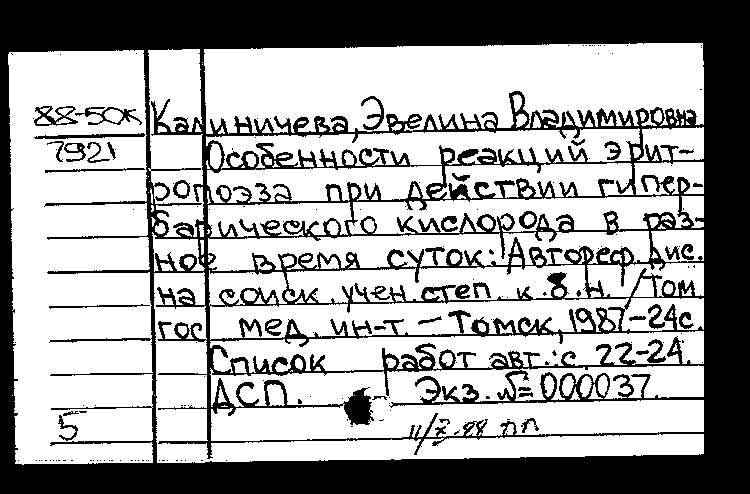 88-50К Калиничева, Эвелина Владимировна
7921 Особенности реакций эрит-
ропоэза при действии гипер-
барического кислорода в раз-
ное время суток: Автореф. дис.
на соиск. учен. степ. к.б.н. / Том
гос мед. ин-т. – Томск, 1987.-24с.
Список работ авт.: с. 22-24.
ДСП. Экз. №=000037.
5